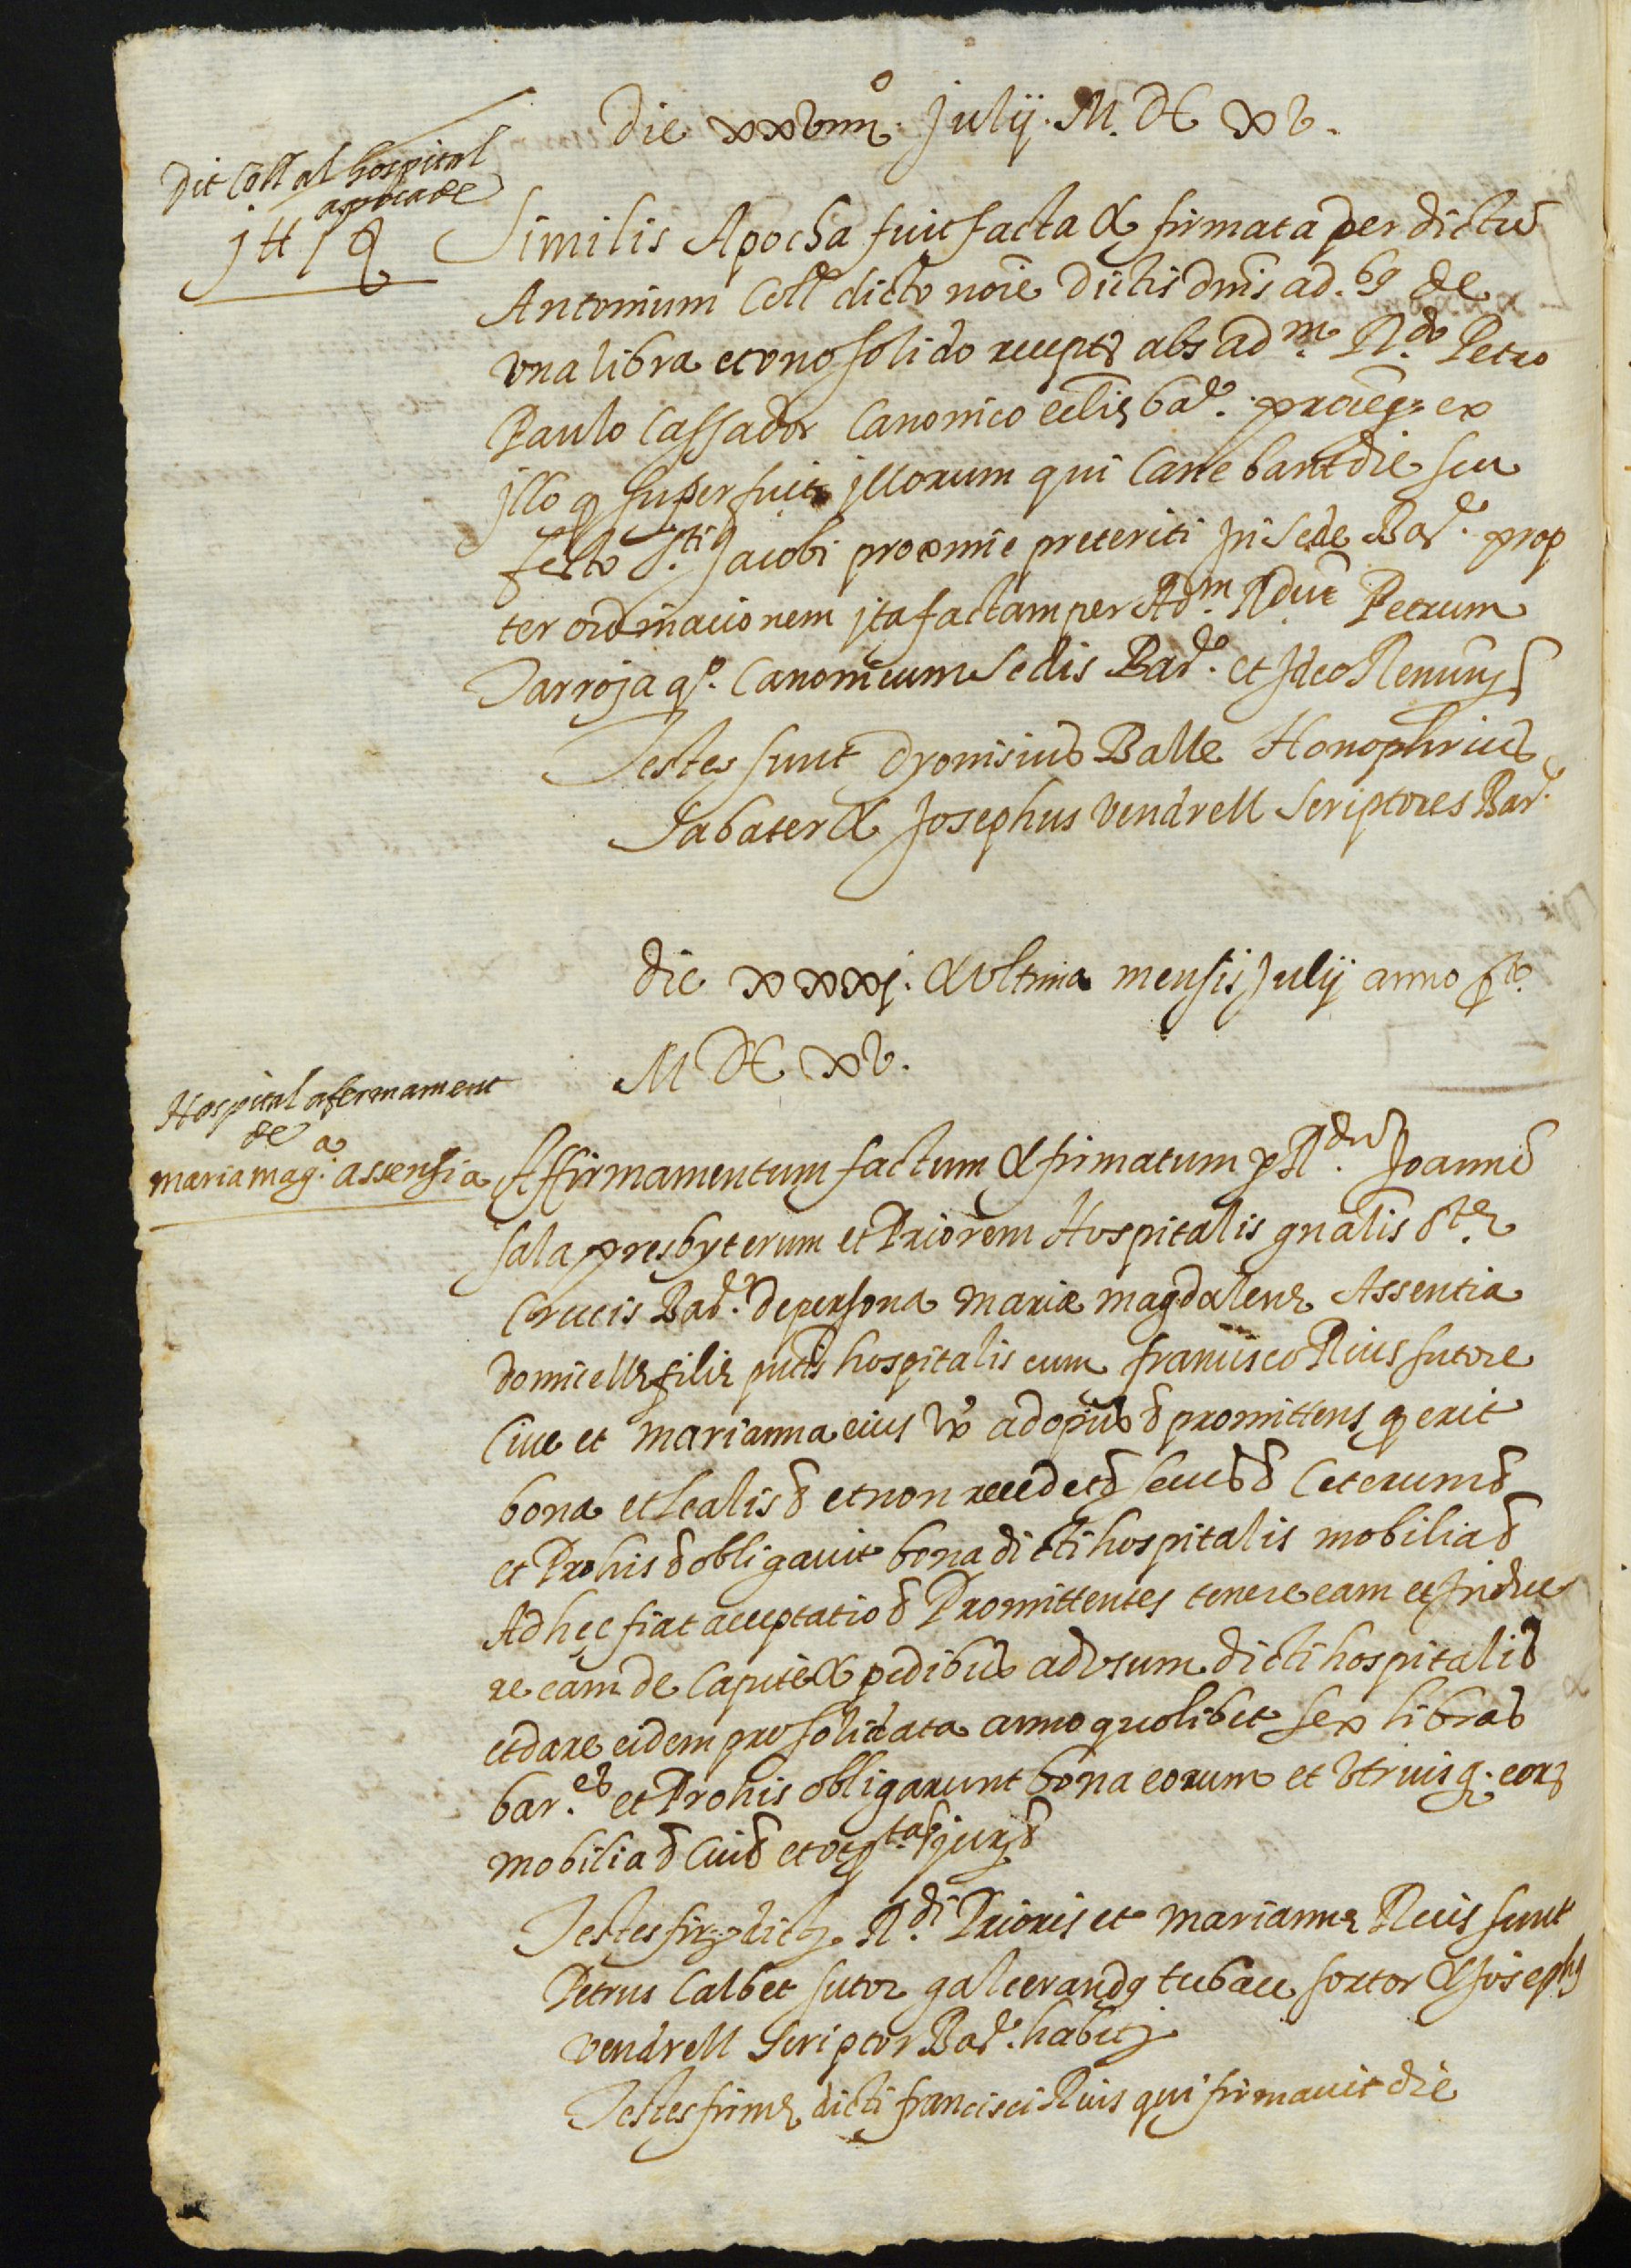 Die xxviiii.º Julij. M. DC xv.
Dit Coll al hospital
apocha de
j ₶ 1 ß
Similis Apocha fuit facta & firmata per dictũ
Antonium Coll dicto noĩe dictis dñis ad.bg de
vna libra et vno solido receptȝ abs adm.ᵉ R.do Petro
Paulo Cassador Canonico eccliȩ bar.ᵉ
jllo q superfuit jllorum qui Canebant die seu
festo S.ti Jacobi proxime preteriti jn Sede Bar.ᵉ prop
ter ordinacionem jta factam per Adm. Rdum Petrum
Tarroja qº. Canonicum Sedis Bar.ᵉ et Jdeo Renuñ
Testes sunt Dyonisius Balle Honophrius
Sabater & Josephus Vendrell Scriptores Bar.ᵉ
die xxxj. & vltima mensis Julij anno p.to
M DC xv.
Hospital afermament
de
maria mag.a assensia
Affirmamentum factum & firmatum p R.dũ Joannẽ
sala presbyterum et Priorem Hospitalis gnãlis S.tę
Crucis Bar.ᵉ de persona mariæ magdalenę Assentia
domicellę filię pñtis hospitalis cum francisco Rius sutore
Ciue et marianna eius vx̃ ad opus & promittens q erit
bona et Lealis & et non recedet & secus & Ceterum &
et Pro his & obligauit bona dicti hospitalis mobilia &
Ad hęc fiat acceptatio & Promittentes tenere eam et Jndue
re eam de Capite & pedibus ad vsum dicti hospitalis
et dare eidem pro solidata anno quolibet sex libras
bar.es et Pro his obligarunt bona eorum et vtriusq. eorȝ
mobilia & Cuis & et jur &
Testes firȩ dictȝ R.di Prioris et mariannę Rius sunt
Petrus Calbet sutor galcerandg tubau sortor & Josephg
vendrell Scriptor Bar.ᵉ habitȝ
Testes firmę dicti francisci Rius qui firmauit die